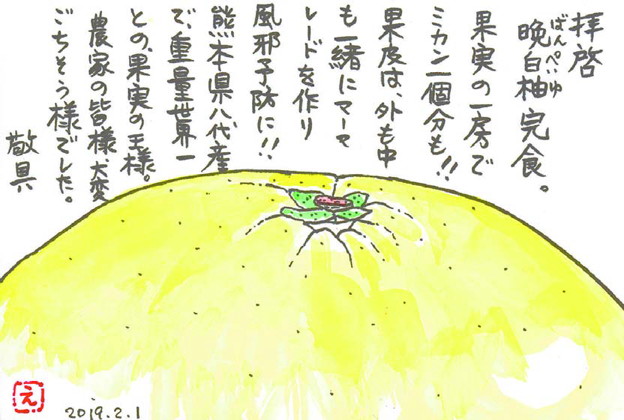 拝啓
晩白柚完食。
ばんぺいゆ
果実の一房で
ミカン一個分も!!
果皮は、外も中
も一緒にマーマ
レードを作り
風邪予防に!!
熊本県八代産
で、重量世界一
との、果実の王様。
農家の皆様、大変
ごちそう様でした。
敬具
え
2019.2.1